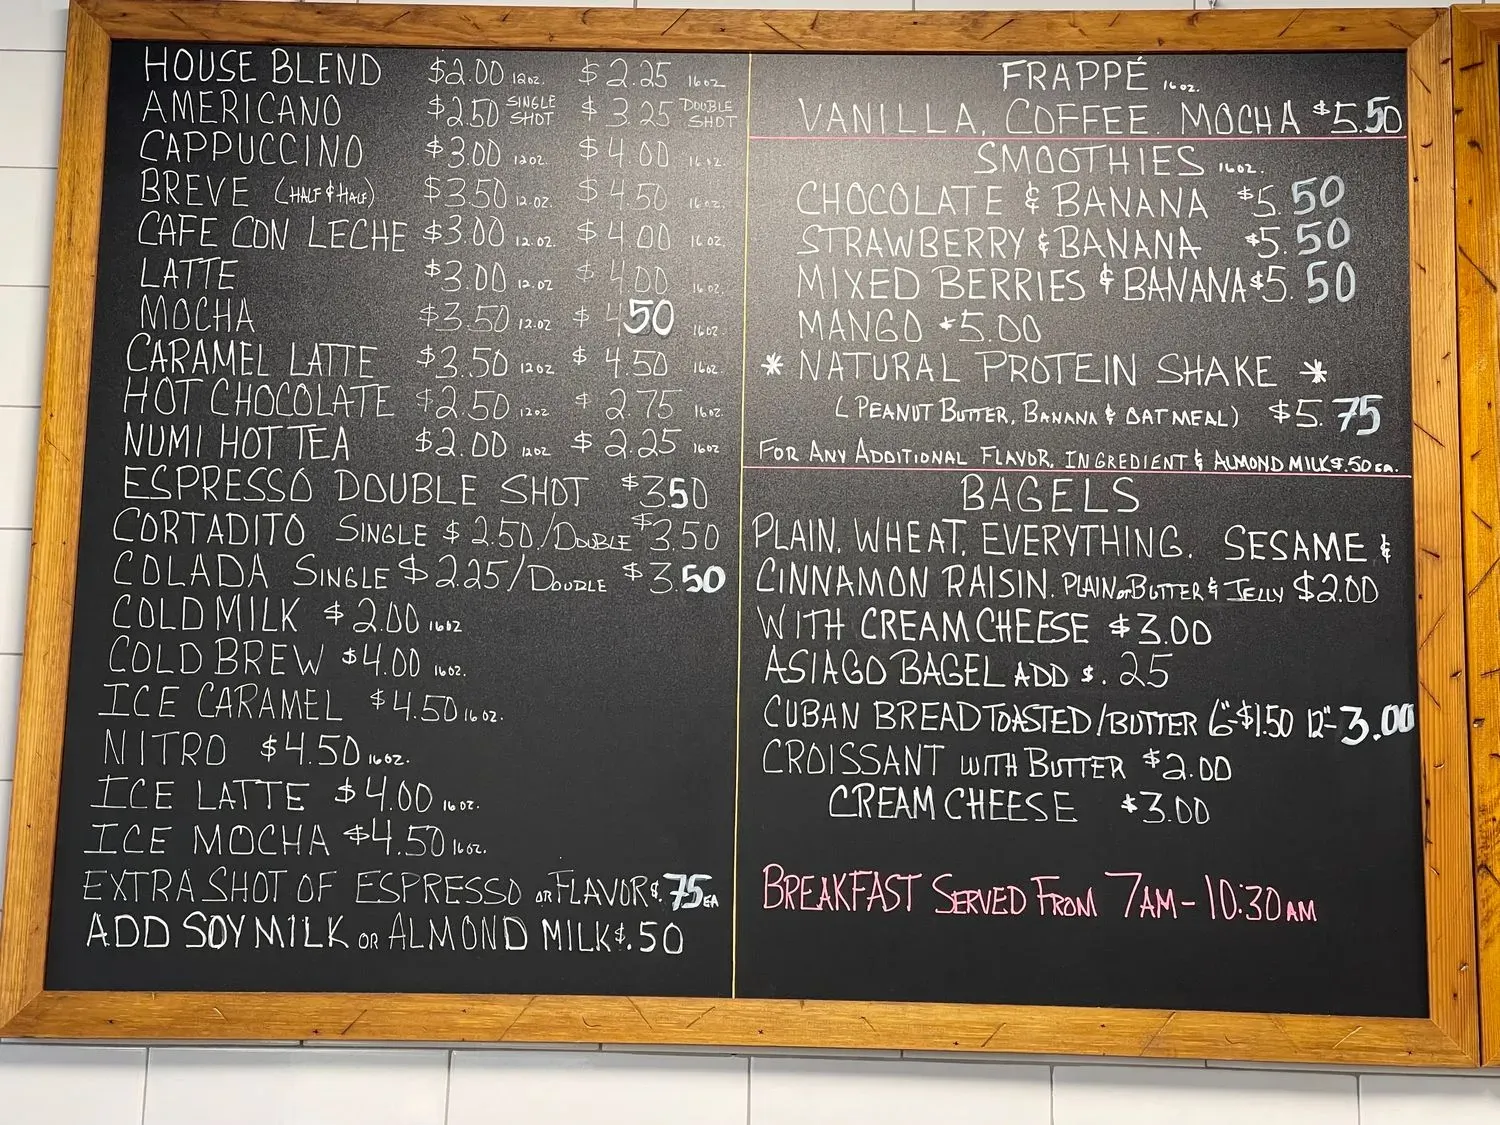 HOUSE BLEND $2.00 12oz. $2.25 16oz
AMERICANO $2.50 SINGLE SHOT $3.25 DOUBLE SHOT
CAPPUCCINO $3.00 12oz. $4.00 16oz.
BREVE (HALF & HALF) $3.50 12.oz. $4.50 16oz.
CAFE CON LECHE $3.00 12.oz. $4.00 16oz.
LATTE $3.00 12.oz $4.00 16oz.
MOCHA $3.50 12.oz $4.50 16oz.
CARAMEL LATTE $3.50 12oz $4.50 16oz.
HOT CHOCOLATE $2.50 12oz $2.75 16oz.
NUMI HOT TEA $2.00 12oz $2.25 16oz
ESPRESSO DOUBLE SHOT $3.50
CORTADITO SINGLE $2.50/DOUBLE $3.50
COLADA SINGLE $2.25/DOUBLE $3.50
COLD MILK $2.00 16oz
COLD BREW $4.00 16oz.
ICE CARAMEL $4.50 16oz.
NITRO $4.50 16oz.
ICE LATTE $4.00 16oz.
ICE MOCHA $4.50 16oz.
EXTRA SHOT OF ESPRESSO OR FLAVOR $.75 EA
ADD SOY MILK OR ALMOND MILK $.50
FRAPPÉ 16oz.
VANILLA, COFFEE. MOCHA $5.50
SMOOTHIES 16oz.
CHOCOLATE & BANANA $5.50
STRAWBERRY & BANANA $5.50
MIXED BERRIES & BANANA $5.50
MANGO $5.00
* NATURAL PROTEIN SHAKE *
(PEANUT BUTTER, BANANA & OATMEAL) $5.75
FOR ANY ADDITIONAL FLAVOR, INGREDIENT & ALMOND MILK $.50 EA.
BAGELS
PLAIN, WHEAT, EVERYTHING. SESAME &
CINNAMON RAISIN. PLAIN or BUTTER & JELLY $2.00
WITH CREAM CHEESE $3.00
ASIAGO BAGEL ADD $.25
CUBAN BREAD TOASTED/BUTTER 6"-$1.50 12"-3.00
CROISSANT WITH BUTTER $2.00
CREAM CHEESE $3.00
BREAKFAST SERVED FROM 7AM-10:30AM